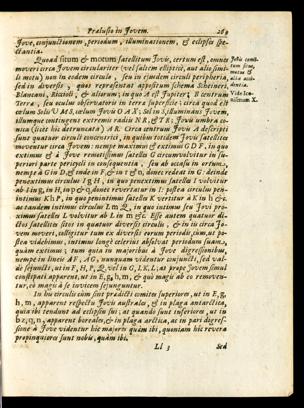 Prælusio in Jovem. 269
Jove, conjunctionem, periodum, illuminationem, & eclipses spe-
ctantia.
Quoad situm & motum satellitum Jovis, certum est, omnes
moveri circa Jovem circulariter (vel saltem elliptice, aut alio simi-
li motu) non in eodem circulo, sed in ejusdem circuli peripheria,
sed in diversis, quos repræsentat appositum schema Scheineri,
Blancani, Riccioli, & aliorum; in quo A est Jupiter; B centrum
Terræ, seu oculus observatoris in terra superficie; circa quod est
cælum Solis U M S, cælum Jovis O A X; Sol in S, illuminans Jovem,
illumque contingens extremis radiis N R, & P R; Jovis umbra co-
nica (licet hic detruncata) A R. Circa centrum Jovis A descripti
sunt quatuor circuli concentrici, in quibus totidem Jovis satellites
moventur circa Jovem: nempe maximus & extimus G D F, in quo
extimus & à Jove remotissimus satelles G circumvolvitur in su-
periori parte peripheriæ in consequentia, seu ab occasu in ortum,
nempe à G in D, & inde in F, &
proximus satelles L volvitur ab L in m &c. Esse autem quatuor di-
ctos satellites sitos in quatuor diversis circulis, & in iis circa Jo-
vem moveri, colligitur tum ex diversis eorum periodis, cum, ut po-
stea videbimus, intimus longè celerius absolvat periodum suam,
quàm extimus; tum quia in majoribus à Jove digressionibus,
nempe in lineis A F, A G, nunquam videntur conjuncti, sed val-
de sejuncti, ut in F, H, P, Q, vel in G, I, K, L; at prope Jovem simul
constipati apparent, ut in E, g, h, m, & quò magis ab eo removen-
tur, eo magis à se invicem sejunguntur.
In his circulis cùm sint prædicti comites superiores, ut in E, g,
h, m, apparent respectu Jovis australes, & in plaga antarctica,
quia ibi tendunt ad eclipsin sui; at quando sunt inferiores, ut in
apparent boreales, & in plaga arctica, ac in pari digres-
sione à Jove videntur hic majores quàm ibi, quoniam hic revera
propinquiores sunt nobis, quàm ibi.
Ll 3 Sed
Jovis comi-
tum situs,
motus &
alia acci-
dentia.
Vide Ico-
nismum X.